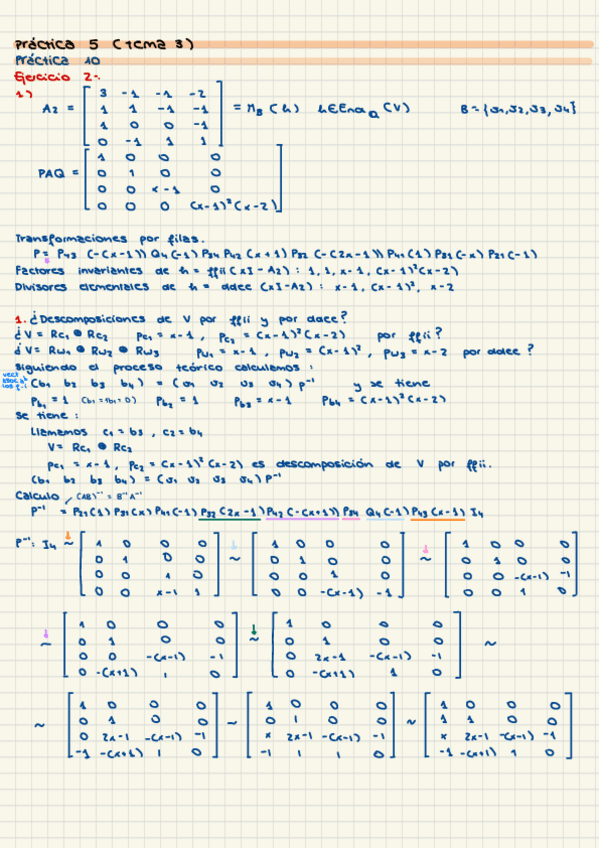 Práctica 5 (Tema 3)
Práctica 10
Ejercicio 2:
1)
A2 = [ 3 -1 -1 -2 ; 1 1 -1 -1 ; 1 0 0 -1 ; 0 -1 1 1 ] = M_B(h) h∈End_Q(V) B = {v1, v2, v3, v4}
PAQ = [ 1 0 0 0 ; 0 1 0 0 ; 0 0 x-1 0 ; 0 0 0 (x-1)²(x-2) ]
Transformaciones por filas.
P = P43 (-(x-1)) Q4(-1) P34 P42 (x+1) P32 (-(2x-1)) P41(1) P31(-x) P21(-1)
Factores invariantes de h = ffii (xI-A2): 1, 1, x-1, (x-1)²(x-2)
Divisores elementales de h = ddee (xI-A2): x-1, (x-1)², x-2
1. ¿Descomposiciones de V por ffii y por ddee?
¿V = Rc1 ⊕ Rc2 pc1 = x-1, pc2 = (x-1)²(x-2) por ffii?
¿V = Rw1 ⊕ Rw2 ⊕ Rw3 pw1 = x-1, pw2 = (x-1)², pw3 = x-2 por ddee?
Siguiendo el proceso teórico calculamos:
(b1 b2 b3 b4) = (v1 v2 v3 v4) P⁻¹ y se tiene
Pb1 = 1 (b1 = 1b1 = 0) Pb2 = 1 Pb3 = x-1 Pb4 = (x-1)²(x-2)
Se tiene:
Llamamos c1 = b3, c2 = b4
V = Rc1 ⊕ Rc2
pc1 = x-1, pc2 = (x-1)²(x-2) es descomposición de V por ffii.
(b1 b2 b3 b4) = (v1 v2 v3 v4) P⁻¹
Calculo (AB)⁻¹ = B⁻¹A⁻¹
P⁻¹ = P21(1) P31(x) P41(-1) P32(2x-1) P42(-(x+1)) P34 Q4(-1) P43(x-1) I4
P⁻¹: I4 ~ [ 1 0 0 0 ; 0 1 0 0 ; 0 0 1 0 ; 0 0 x-1 1 ] ~ [ 1 0 0 0 ; 0 1 0 0 ; 0 0 1 0 ; 0 0 -(x-1) -1 ] ~ [ 1 0 0 0 ; 0 1 0 0 ; 0 0 -(x-1) -1 ; 0 0 1 0 ]
~ [ 1 0 0 0 ; 0 1 0 0 ; 0 0 -(x-1) -1 ; 0 -(x+1) 1 0 ] ~ [ 1 0 0 0 ; 0 1 0 0 ; 0 2x-1 -(x-1) -1 ; 0 -(x+1) 1 0 ] ~
~ [ 1 0 0 0 ; 0 1 0 0 ; 0 2x-1 -(x-1) -1 ; -1 -(x+1) 1 0 ] ~ [ 1 0 0 0 ; 0 1 0 0 ; x 2x-1 -(x-1) -1 ; -1 1 1 0 ] ~ [ 1 0 0 0 ; 1 1 0 0 ; x 2x-1 -(x-1) -1 ; -1 -(x+1) 1 0 ]